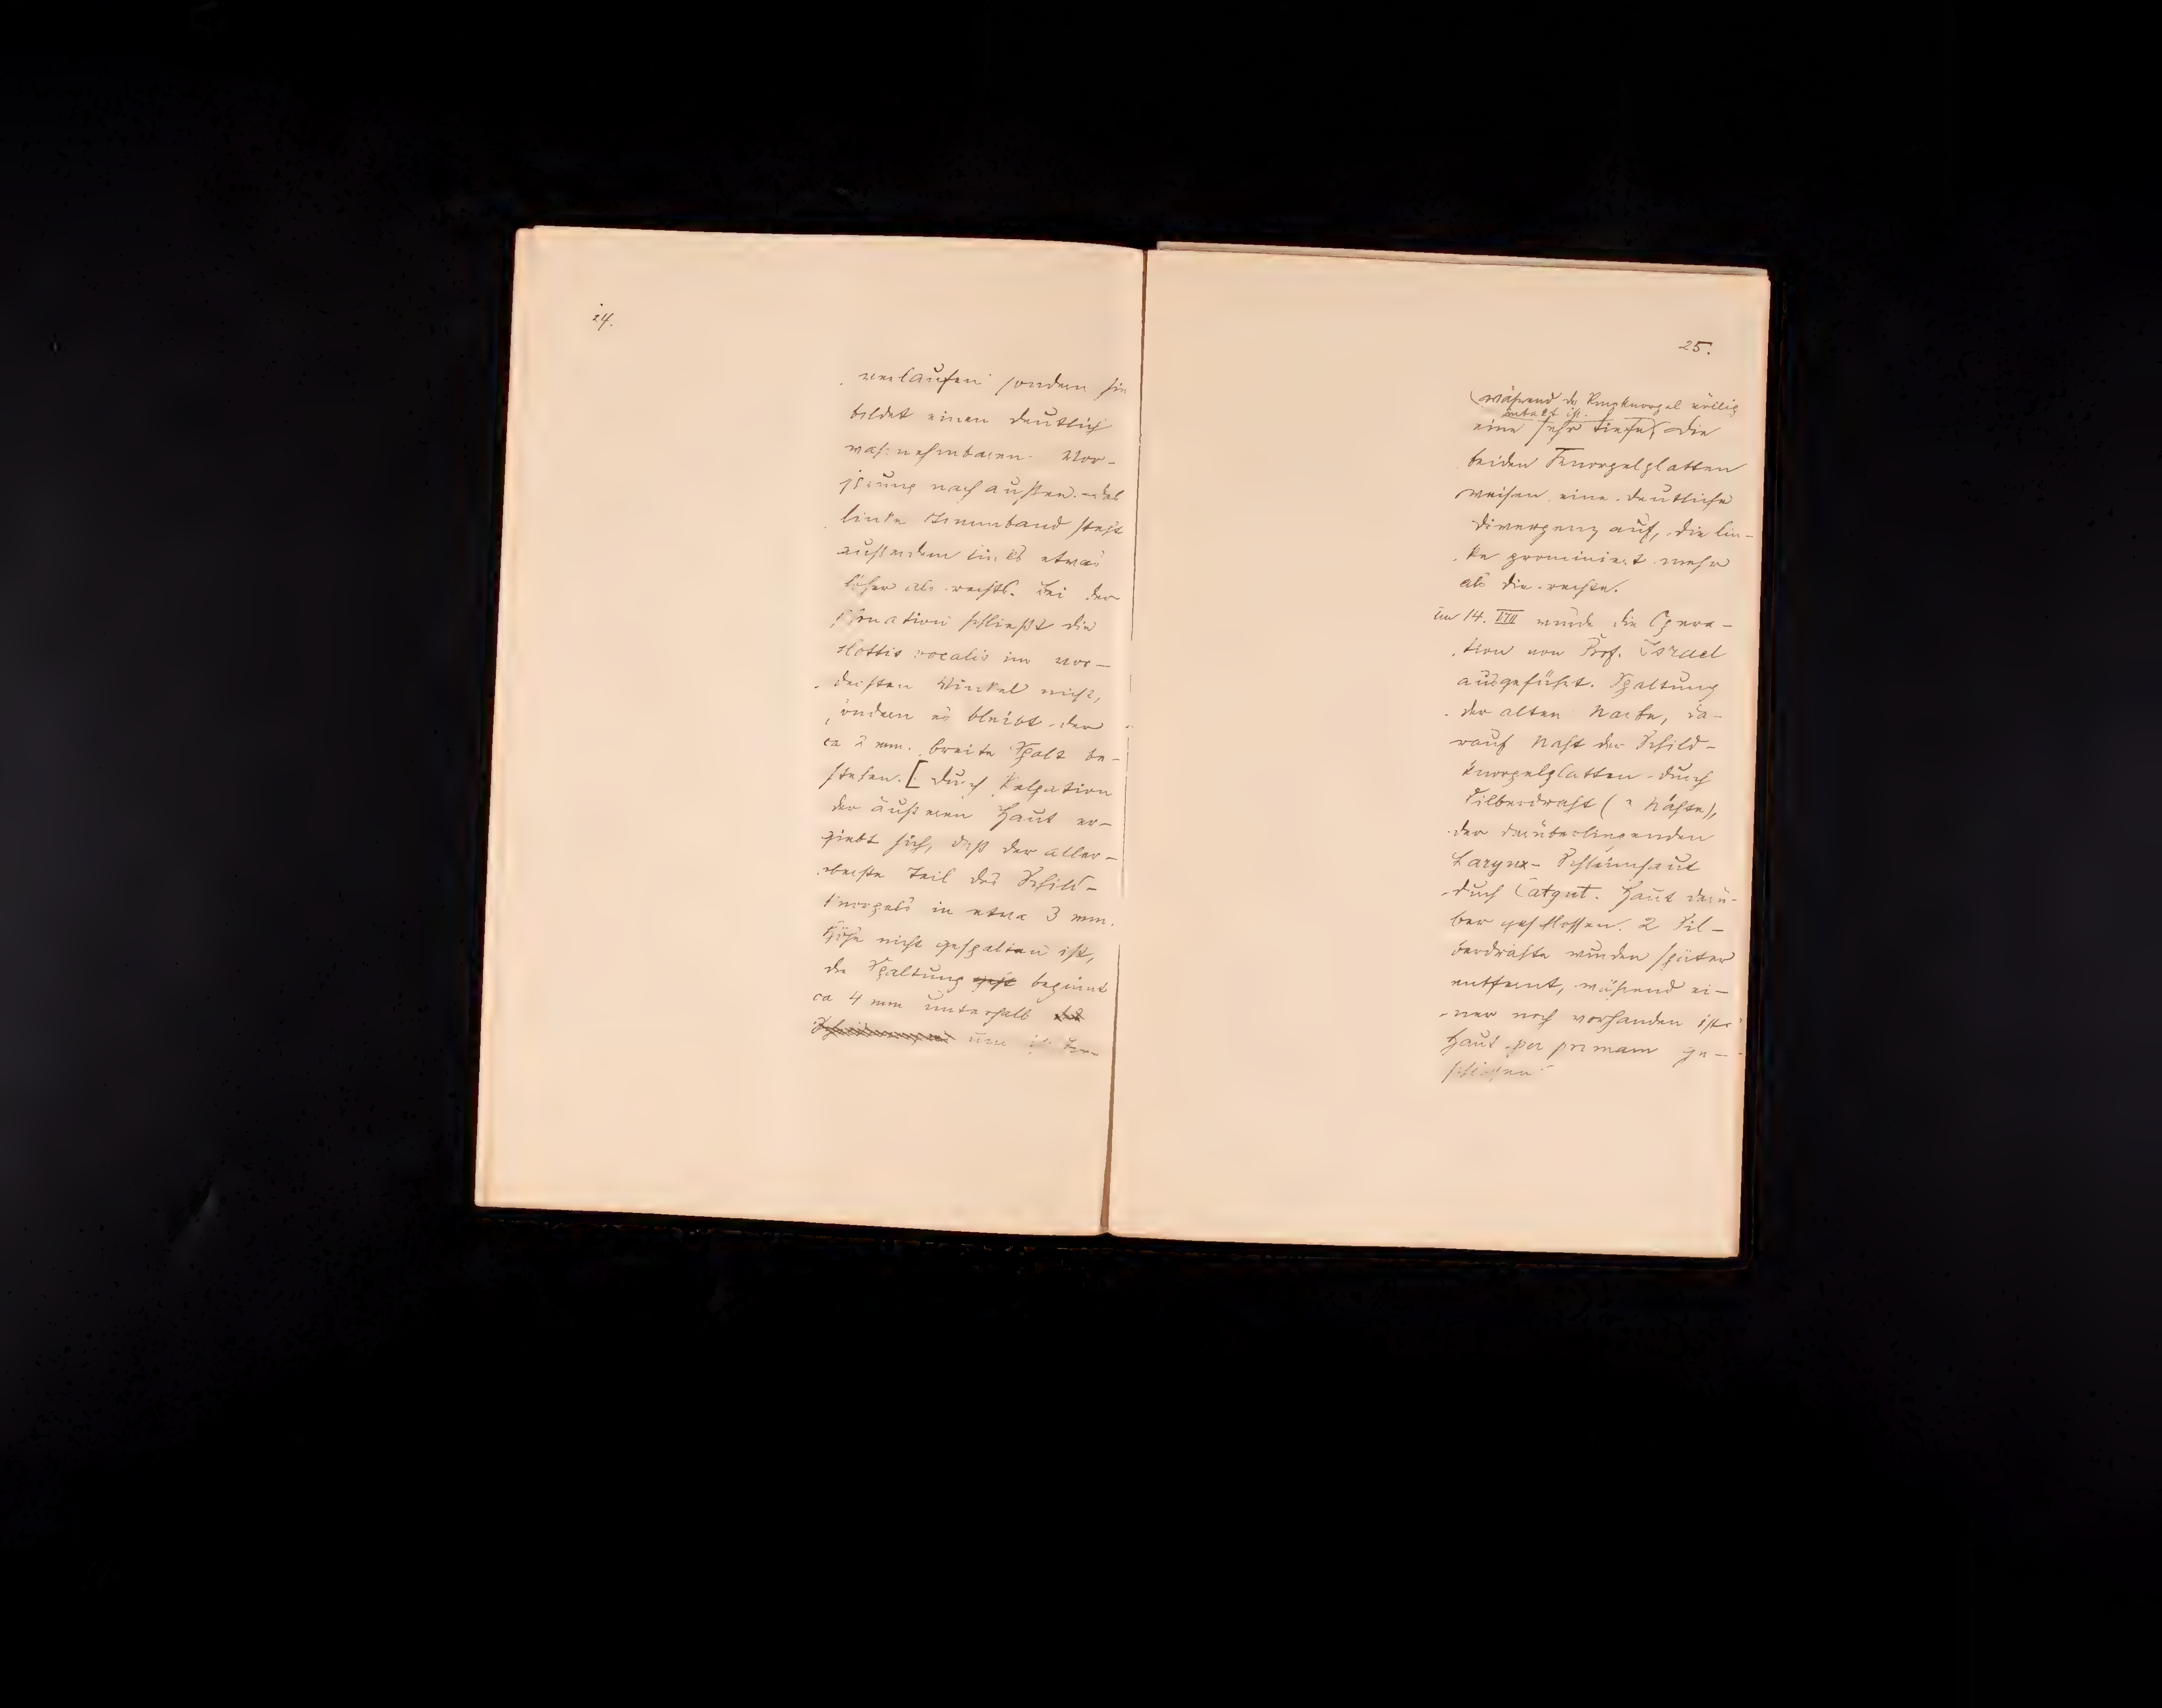 24.
verlaufen sondern sie
bildet einen deutlich
wahrnehmbaren Vor-
sprung nach aussen. das
linke Stimmband steht
ausserdem links etwas
höher als rechts. Bei der
Phonation schliesst die
Glottis vocalis im vor-
dersten Winkel nicht,
sondern es bleibt der
ca 2 mm. breite Spalt be-
stehen. [ Durch Palpation
der äusseren Haut er-
giebt sich, dass der aller-
oberste Teil des Schild-
knorpels in etwa 3 mm.
Höhe nicht gespalten ist,
die Spaltung beginnt
ca 4 mm unterhalb
und ist
25.
(während der Ringknorpel völlig
intakt ist.
eine sehr tiefe) die
beiden Knorpelplatten
weisen eine deutliche
Divergenz auf, die lin-
ke prominiert mehr
als die rechte.
14. VIII wurde die Opera-
tion von Prof. Israel
ausgeführt. Spaltung
der alten Narbe, da-
rauf Naht der Schild-
knorpelplatten durch
Silberdraht (3 Nähte),
der darüberliegenden
Larynx-Schleimhaut
durch Catgut. Haut darü-
ber geschlossen. 2 Sil-
berdrähte wurden später
entfernt, während ei-
ner noch vorhanden ist.
Haut per primam ge-
schlossen.